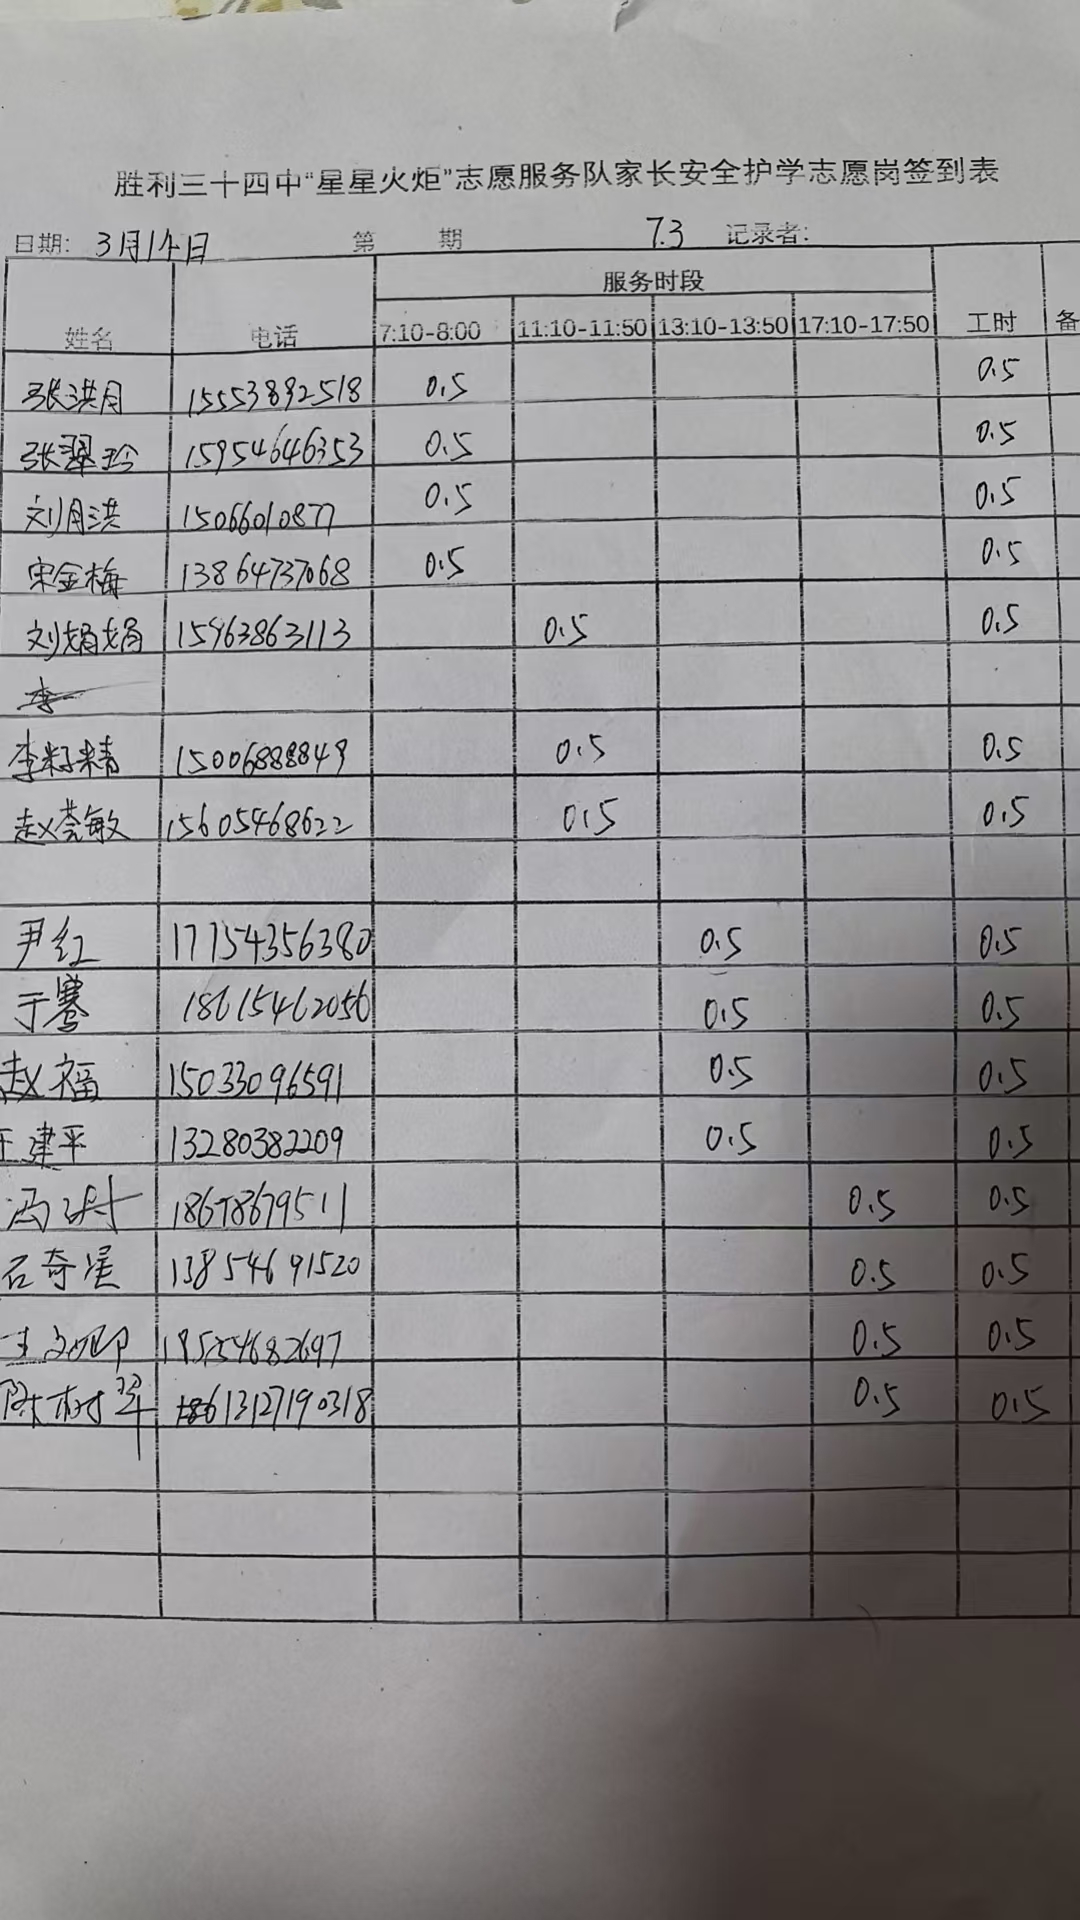 胜利三十四中“星星火炬”志愿服务队家长安全护学志愿岗签到表
日期: 3月14日 第 期 7.3 记录者:
服务时段
姓名 电话 7:10-8:00 11:10-11:50 13:10-13:50 17:10-17:50 工时 备
张洪月 15553892518 0.5 0.5
张翠玲 15954646353 0.5 0.5
刘月洪 15066010877 0.5 0.5
宋金梅 13864737068 0.5 0.5
刘娟娟 15463863113 0.5 0.5
李
李籽精 15006888849 0.5 0.5
赵莞敏 15605468622 0.5 0.5
尹红 17754356380 0.5 0.5
于骞 18615462056 0.5 0.5
赵福 15033096591 0.5 0.5
王建平 13280382209 0.5 0.5
冯 18678679511 0.5 0.5
石奇星 13854691520 0.5 0.5
王 18554682697 0.5 0.5
陈树翠 13127190318 0.5 0.5